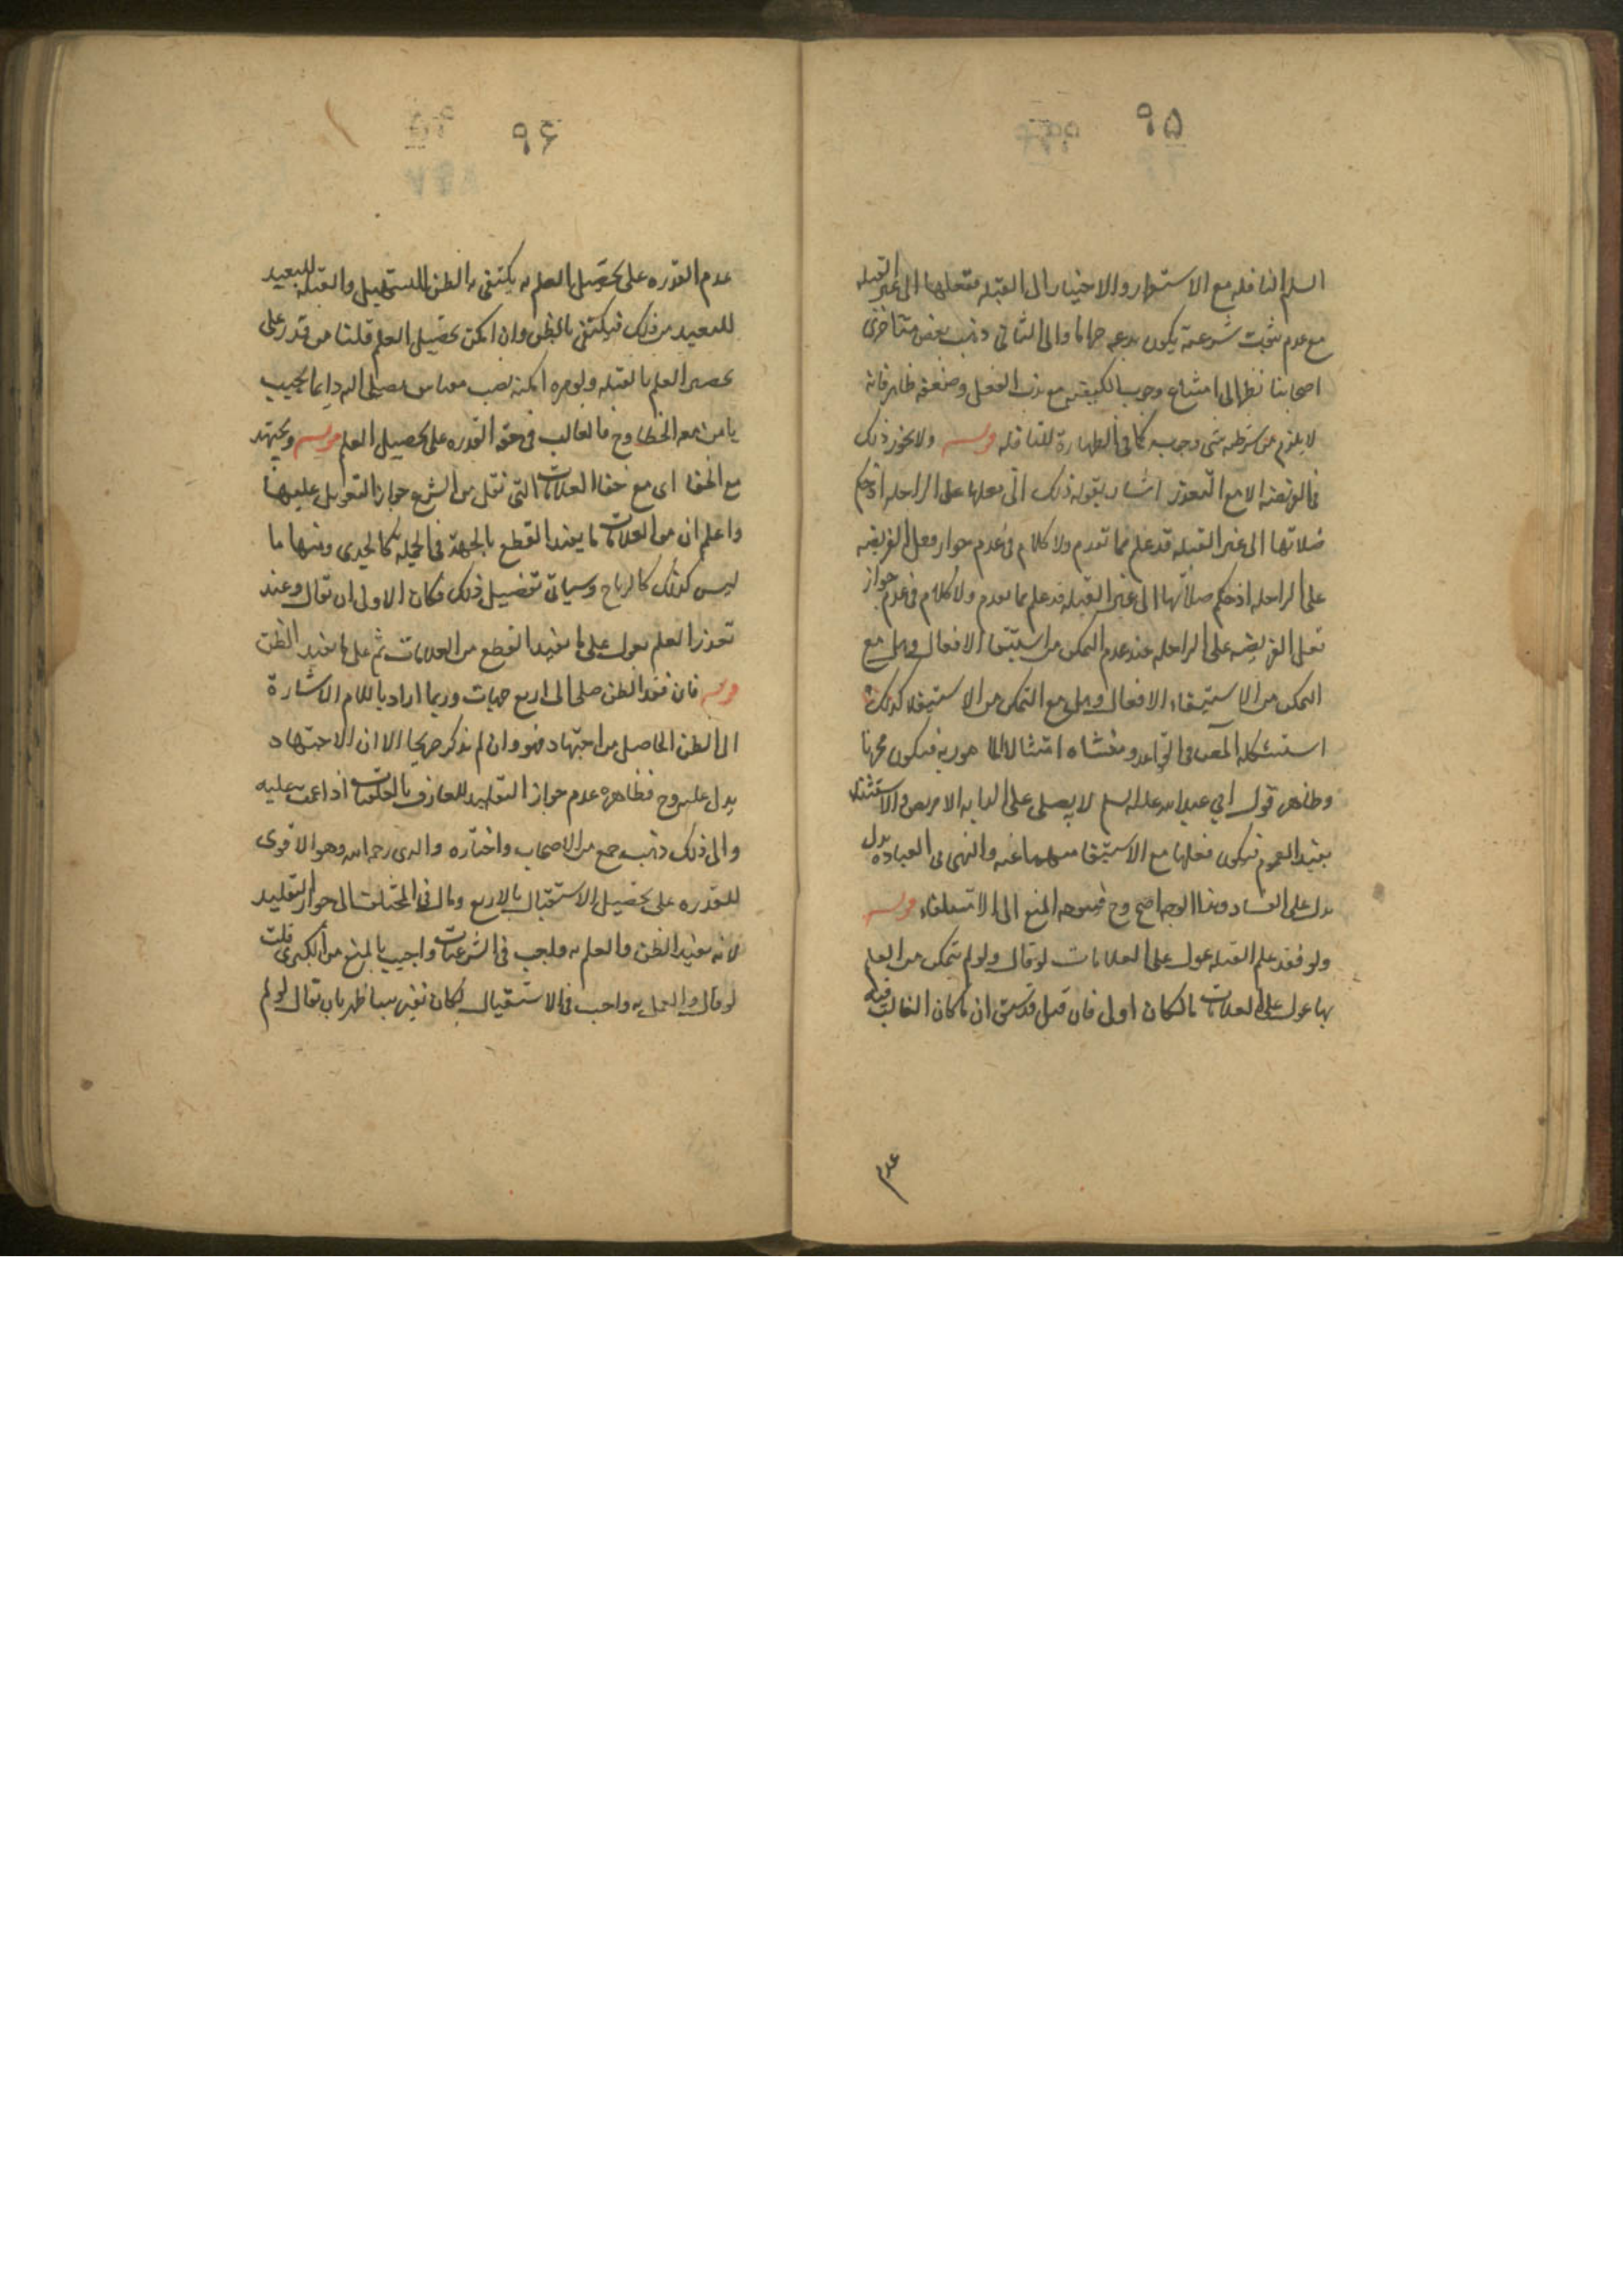 ٩٥
السلم النافله مع الاستقرار والاختيار الى القبله ففعلها الى غير القبله
مع عدم ثبوت شرعيته يكون بدعه حراما والى الثاني ذهب بعض متاخرى
اصحابنا نظرا الى امتناع وجوب الكيفيه مع ندب الفعل وضعفه ظاهر فانه
لا يلزم من شرطيه شى وجوبه كما في الطهارة للنافله قوله ولا يجوز ذلك
في الفريضه الا مع التعذر اشار بقوله ذلك الى فعلها على الراحله اذ حكم
صلاتها الى غير القبله قد علم مما تقدم ولا كلام في عدم جواز فعل الفريضه
على الراحله اذ حكم صلاتها الى غير القبله قد علم مما تقدم ولا كلام في عدم جواز
فعل الفريضه على الراحله عند عدم التمكن من استيفا الافعال وهل مع
التمكن من الاستيفاء الافعال وهل مع التمكن من الاستيفا كذلك
استشكله المصنف في القواعد ومنشاه
وظاهر قول ابي عبدالله عليه السلم لا يصلى على الدابه الا مريض والاستثناء
يفيد العموم فيكون فعلها مع الاستيفا منهيا عنه والنهى في العباده يدل
يدل على الفساد وهذا الوجه اصح وح فيتوجه المنع الى قوله
ولو فقد علم القبله عول على العلامات لو قال ولو لم يتمكن من العلم
بها عول على العلامات لكان اولى فان قيل قد سبق ان ما كان الغالب فيه
عدم
٩٦
عدم القدره على تحصيل العلم به يكتفى بالظن للمستقبل والقبله للبعيد
للبعيد من ذلك فيكتفى بالظن وان امكن تحصيل العلم قلنا من قدر على
تحصيل العلم بالقبله ولو مره امكنه نصب يصلى اليه دايما بحيث
يامن معه الخطا وح فالغالب في حقه القدره على تحصيل العلم قوله ويجتهد
مع الخفا اى مع خفا العلامات التى نقل من الشرع جواز التعويل عليها
واعلم ان من العلامات ما يفيد القطع بالجهة في الجمله كالجدى ومنها ما
ليس كذلك كالرياح وسياتي تفصيل ذلك فكان الاولى ان يقال وعند
تعذر العلم يعول على ما يفيد القطع من العلامات ثم على ما يفيد الظن
قوله فان فقد الظن صلى الى اربع جهات وربما اراد باللام الاشارة
الى الظن الحاصل من اجتهاد فهو وان لم يذكر صريحا الا ان الاجتهاد
يدل عليه وح فظاهره عدم جواز التقليد للعارف بالعلامات اذا عميت عليه
والى ذلك ذهب جمع من الاصحاب واختاره والدى رحمه الله وهو الاقوى
للقدره على تحصيل الاستقبال بالاربع ومال في المختلف الى جواز التقليد
لانه يفيد الظن والعلم به واجب في الشرعيات واجيب بالمنع من الكبرى قلت
لو قال والعمل به واجب في الاستقبال لكان بان يقال لو لم